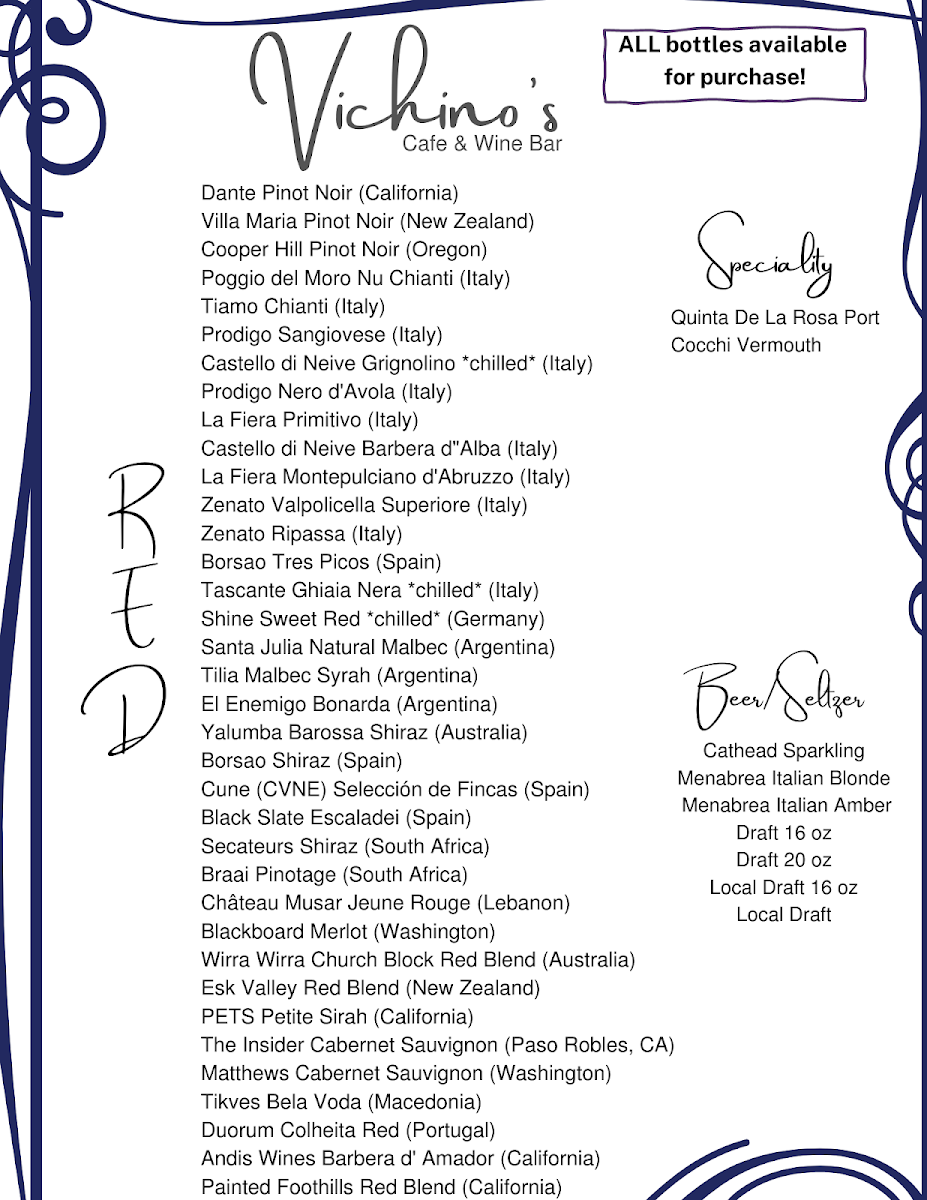 Vichino's
Cafe & Wine Bar
ALL bottles available
for purchase!
RED
Dante Pinot Noir (California)
Villa Maria Pinot Noir (New Zealand)
Cooper Hill Pinot Noir (Oregon)
Poggio del Moro Nu Chianti (Italy)
Tiamo Chianti (Italy)
Prodigo Sangiovese (Italy)
Castello di Neive Grignolino *chilled* (Italy)
Prodigo Nero d'Avola (Italy)
La Fiera Primitivo (Italy)
Castello di Neive Barbera d"Alba (Italy)
La Fiera Montepulciano d'Abruzzo (Italy)
Zenato Valpolicella Superiore (Italy)
Zenato Ripassa (Italy)
Borsao Tres Picos (Spain)
Tascante Ghiaia Nera *chilled* (Italy)
Shine Sweet Red *chilled* (Germany)
Santa Julia Natural Malbec (Argentina)
Tilia Malbec Syrah (Argentina)
El Enemigo Bonarda (Argentina)
Yalumba Barossa Shiraz (Australia)
Borsao Shiraz (Spain)
Cune (CVNE) Selección de Fincas (Spain)
Black Slate Escaladei (Spain)
Secateurs Shiraz (South Africa)
Braai Pinotage (South Africa)
Château Musar Jeune Rouge (Lebanon)
Blackboard Merlot (Washington)
Wirra Wirra Church Block Red Blend (Australia)
Esk Valley Red Blend (New Zealand)
PETS Petite Sirah (California)
The Insider Cabernet Sauvignon (Paso Robles, CA)
Matthews Cabernet Sauvignon (Washington)
Tikves Bela Voda (Macedonia)
Duorum Colheita Red (Portugal)
Andis Wines Barbera d' Amador (California)
Painted Foothills Red Blend (California)
Speciality
Quinta De La Rosa Port
Cocchi Vermouth
Beer/Seltzer
Cathead Sparkling
Menabrea Italian Blonde
Menabrea Italian Amber
Draft 16 oz
Draft 20 oz
Local Draft 16 oz
Local Draft